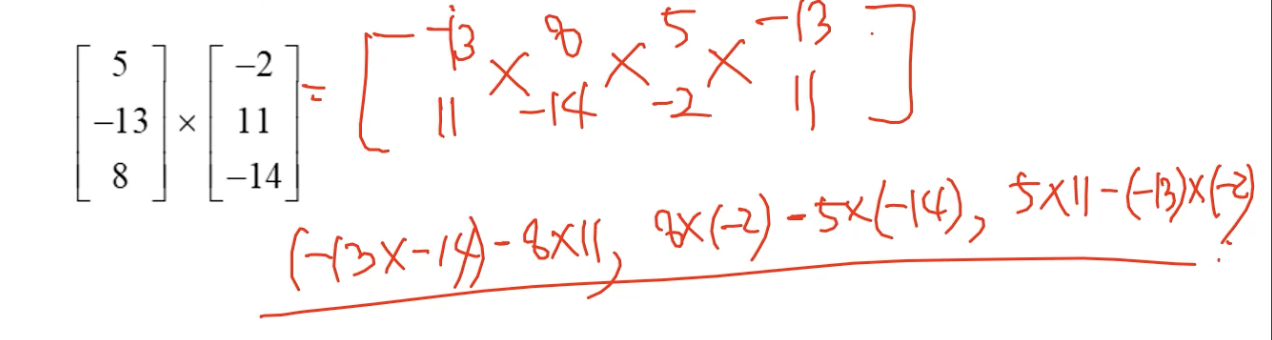 [5 -13 8] × [-2 11 -14] = [-13 8 5 -13
11 × -14 × -2 × 11]
(-13×-14)-8×11, 8×(-2)-5×(-14), 5×11-(-13)×(-2)